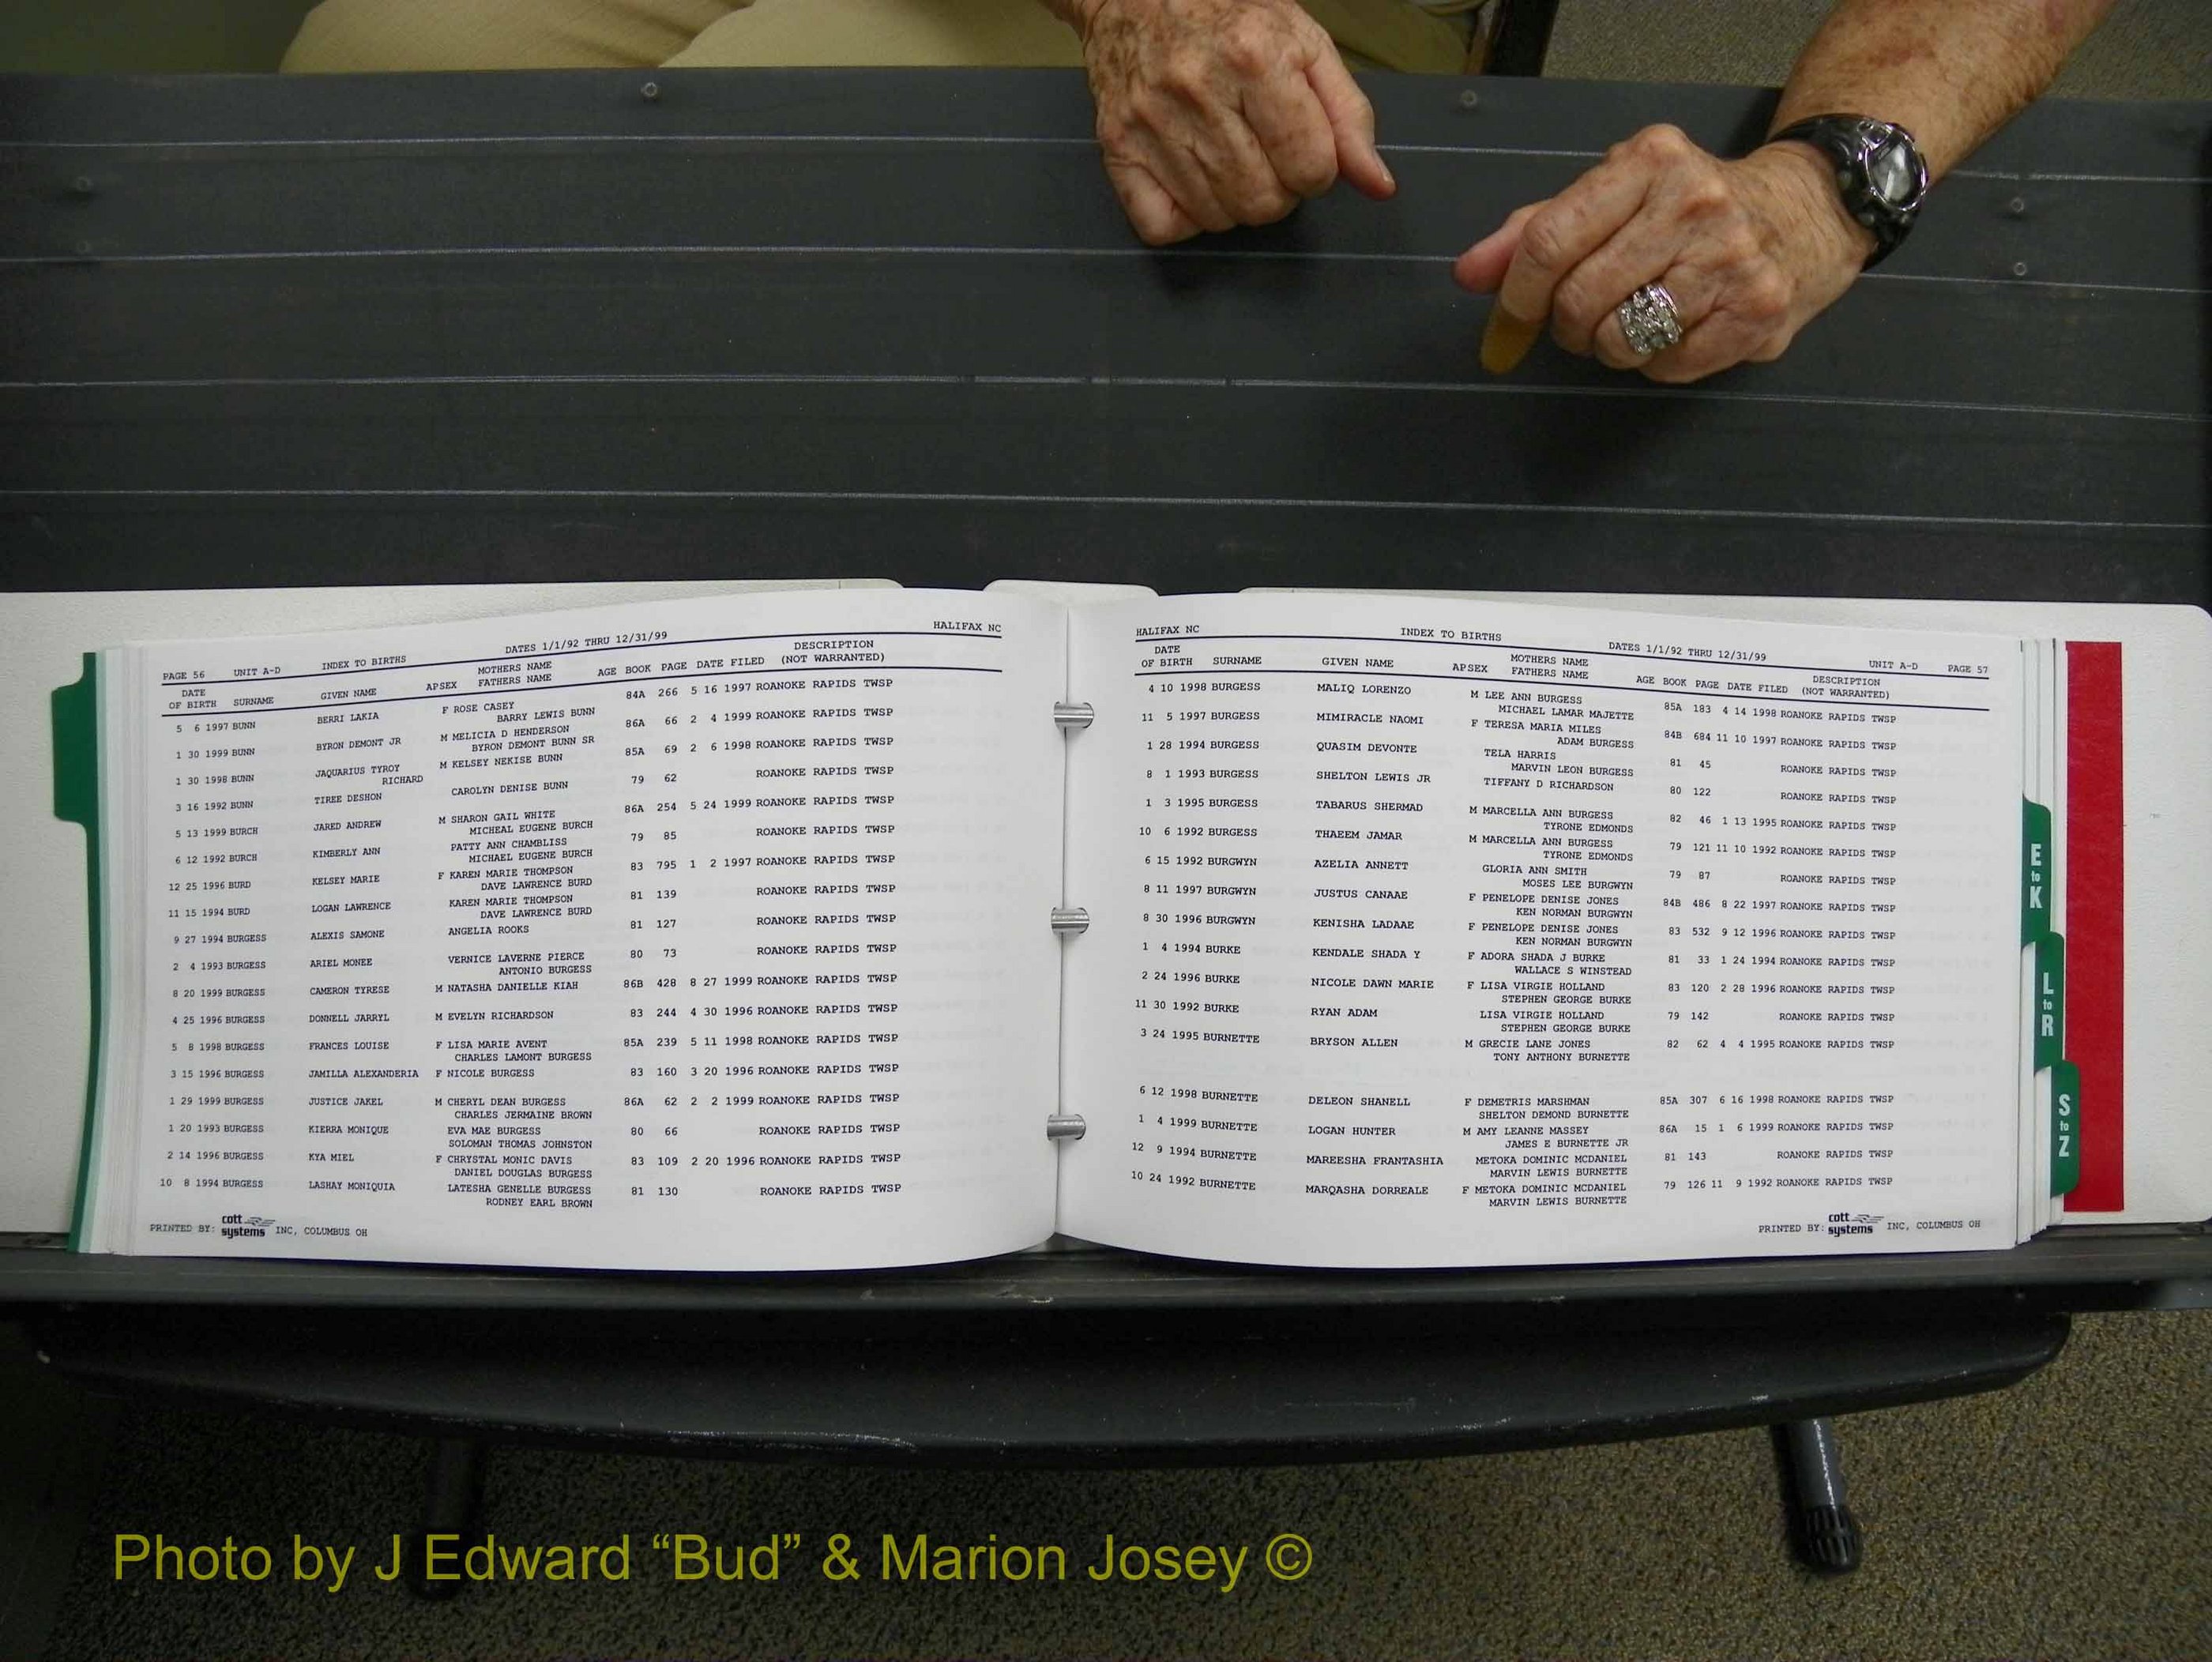 HALIFAX NC
PAGE 56 UNIT A-D INDEX TO BIRTHS DATES 1/1/92 THRU 12/31/99
DATE OF BIRTH SURNAME GIVEN NAME AP SEX MOTHERS NAME FATHERS NAME AGE BOOK PAGE DATE FILED DESCRIPTION (NOT WARRANTED)
5 6 1997 BUNN BERRI LAKIA F ROSE CASEY 84A 266 5 16 1997 ROANOKE RAPIDS TWSP
BARRY LEWIS BUNN
1 30 1999 BUNN BYRON DEMONT JR M MELICIA D HENDERSON 86A 66 2 4 1999 ROANOKE RAPIDS TWSP
BYRON DEMONT BUNN SR
1 30 1998 BUNN JAQUARIUS TYROY M KELSEY NEKISE BUNN 85A 69 2 6 1998 ROANOKE RAPIDS TWSP
RICHARD
3 16 1992 BUNN TIREE DESHON CAROLYN DENISE BUNN 79 62 ROANOKE RAPIDS TWSP
5 13 1999 BURCH JARED ANDREW M SHARON GAIL WHITE 86A 254 5 24 1999 ROANOKE RAPIDS TWSP
MICHEAL EUGENE BURCH
6 12 1992 BURCH KIMBERLY ANN PATTY ANN CHAMBLISS 79 85 ROANOKE RAPIDS TWSP
MICHAEL EUGENE BURCH
12 25 1996 BURD KELSEY MARIE F KAREN MARIE THOMPSON 83 795 1 2 1997 ROANOKE RAPIDS TWSP
DAVE LAWRENCE BURD
11 15 1994 BURD LOGAN LAWRENCE KAREN MARIE THOMPSON 81 139 ROANOKE RAPIDS TWSP
DAVE LAWRENCE BURD
9 27 1994 BURGESS ALEXIS SAMONE ANGELIA ROOKS 81 127 ROANOKE RAPIDS TWSP
2 4 1993 BURGESS ARIEL MONEE VERNICE LAVERNE PIERCE 80 73 ROANOKE RAPIDS TWSP
ANTONIO BURGESS
8 20 1999 BURGESS CAMERON TYRESE M NATASHA DANIELLE KIAH 86B 428 8 27 1999 ROANOKE RAPIDS TWSP
4 25 1996 BURGESS DONNELL JARRYL M EVELYN RICHARDSON 83 244 4 30 1996 ROANOKE RAPIDS TWSP
5 8 1998 BURGESS FRANCES LOUISE F LISA MARIE AVENT 85A 239 5 11 1998 ROANOKE RAPIDS TWSP
CHARLES LAMONT BURGESS
3 15 1996 BURGESS JAMILLA ALEXANDERIA F NICOLE BURGESS 83 160 3 20 1996 ROANOKE RAPIDS TWSP
1 29 1999 BURGESS JUSTICE JAKEL M CHERYL DEAN BURGESS 86A 62 2 2 1999 ROANOKE RAPIDS TWSP
CHARLES JERMAINE BROWN
1 20 1993 BURGESS KIERRA MONIQUE EVA MAE BURGESS 80 66 ROANOKE RAPIDS TWSP
SOLOMAN THOMAS JOHNSTON
2 14 1996 BURGESS KYA MIEL F CHRYSTAL MONIC DAVIS 83 109 2 20 1996 ROANOKE RAPIDS TWSP
DANIEL DOUGLAS BURGESS
10 8 1994 BURGESS LASHAY MONIQUIA LATESHA GENELLE BURGESS 81 130 ROANOKE RAPIDS TWSP
RODNEY EARL BROWN
PRINTED BY: cott systems INC, COLUMBUS OH
HALIFAX NC INDEX TO BIRTHS DATES 1/1/92 THRU 12/31/99 UNIT A-D PAGE 57
DATE OF BIRTH SURNAME GIVEN NAME AP SEX MOTHERS NAME FATHERS NAME AGE BOOK PAGE DATE FILED DESCRIPTION (NOT WARRANTED)
4 10 1998 BURGESS MALIQ LORENZO M LEE ANN BURGESS 85A 183 4 14 1998 ROANOKE RAPIDS TWSP
MICHAEL LAMAR MAJETTE
11 5 1997 BURGESS MIMIRACLE NAOMI F TERESA MARIA MILES 84B 684 11 10 1997 ROANOKE RAPIDS TWSP
ADAM BURGESS
1 28 1994 BURGESS QUASIM DEVONTE TELA HARRIS 81 45 ROANOKE RAPIDS TWSP
MARVIN LEON BURGESS
8 1 1993 BURGESS SHELTON LEWIS JR TIFFANY D RICHARDSON 80 122 ROANOKE RAPIDS TWSP
1 3 1995 BURGESS TABARUS SHERMAD M MARCELLA ANN BURGESS 82 46 1 13 1995 ROANOKE RAPIDS TWSP
TYRONE EDMONDS
10 6 1992 BURGESS THAEEM JAMAR M MARCELLA ANN BURGESS 79 121 11 10 1992 ROANOKE RAPIDS TWSP
TYRONE EDMONDS
6 15 1992 BURGWYN AZELIA ANNETT GLORIA ANN SMITH 79 87 ROANOKE RAPIDS TWSP
MOSES LEE BURGWYN
8 11 1997 BURGWYN JUSTUS CANAAE F PENELOPE DENISE JONES 84B 486 8 22 1997 ROANOKE RAPIDS TWSP
KEN NORMAN BURGWYN
8 30 1996 BURGWYN KENISHA LADAAE F PENELOPE DENISE JONES 83 532 9 12 1996 ROANOKE RAPIDS TWSP
KEN NORMAN BURGWYN
1 4 1994 BURKE KENDALE SHADA Y F ADORA SHADA J BURKE 81 33 1 24 1994 ROANOKE RAPIDS TWSP
WALLACE S WINSTEAD
2 24 1996 BURKE NICOLE DAWN MARIE F LISA VIRGIE HOLLAND 83 120 2 28 1996 ROANOKE RAPIDS TWSP
STEPHEN GEORGE BURKE
11 30 1992 BURKE RYAN ADAM LISA VIRGIE HOLLAND 79 142 ROANOKE RAPIDS TWSP
STEPHEN GEORGE BURKE
3 24 1995 BURNETTE BRYSON ALLEN M GRECIE LANE JONES 82 62 4 4 1995 ROANOKE RAPIDS TWSP
TONY ANTHONY BURNETTE
6 12 1998 BURNETTE DELEON SHANELL F DEMETRIS MARSHMAN 85A 307 6 16 1998 ROANOKE RAPIDS TWSP
SHELTON DEMOND BURNETTE
1 4 1999 BURNETTE LOGAN HUNTER M AMY LEANNE MASSEY 86A 15 1 6 1999 ROANOKE RAPIDS TWSP
JAMES E BURNETTE JR
12 9 1994 BURNETTE MAREESHA FRANTASHIA METOKA DOMINIC MCDANIEL 81 143 ROANOKE RAPIDS TWSP
MARVIN LEWIS BURNETTE
10 24 1992 BURNETTE MARQASHA DORREALE F METOKA DOMINIC MCDANIEL 79 126 11 9 1992 ROANOKE RAPIDS TWSP
MARVIN LEWIS BURNETTE
PRINTED BY: cott systems INC, COLUMBUS OH
E to K
L to R
S to Z
Photo by J Edward “Bud” & Marion Josey ©